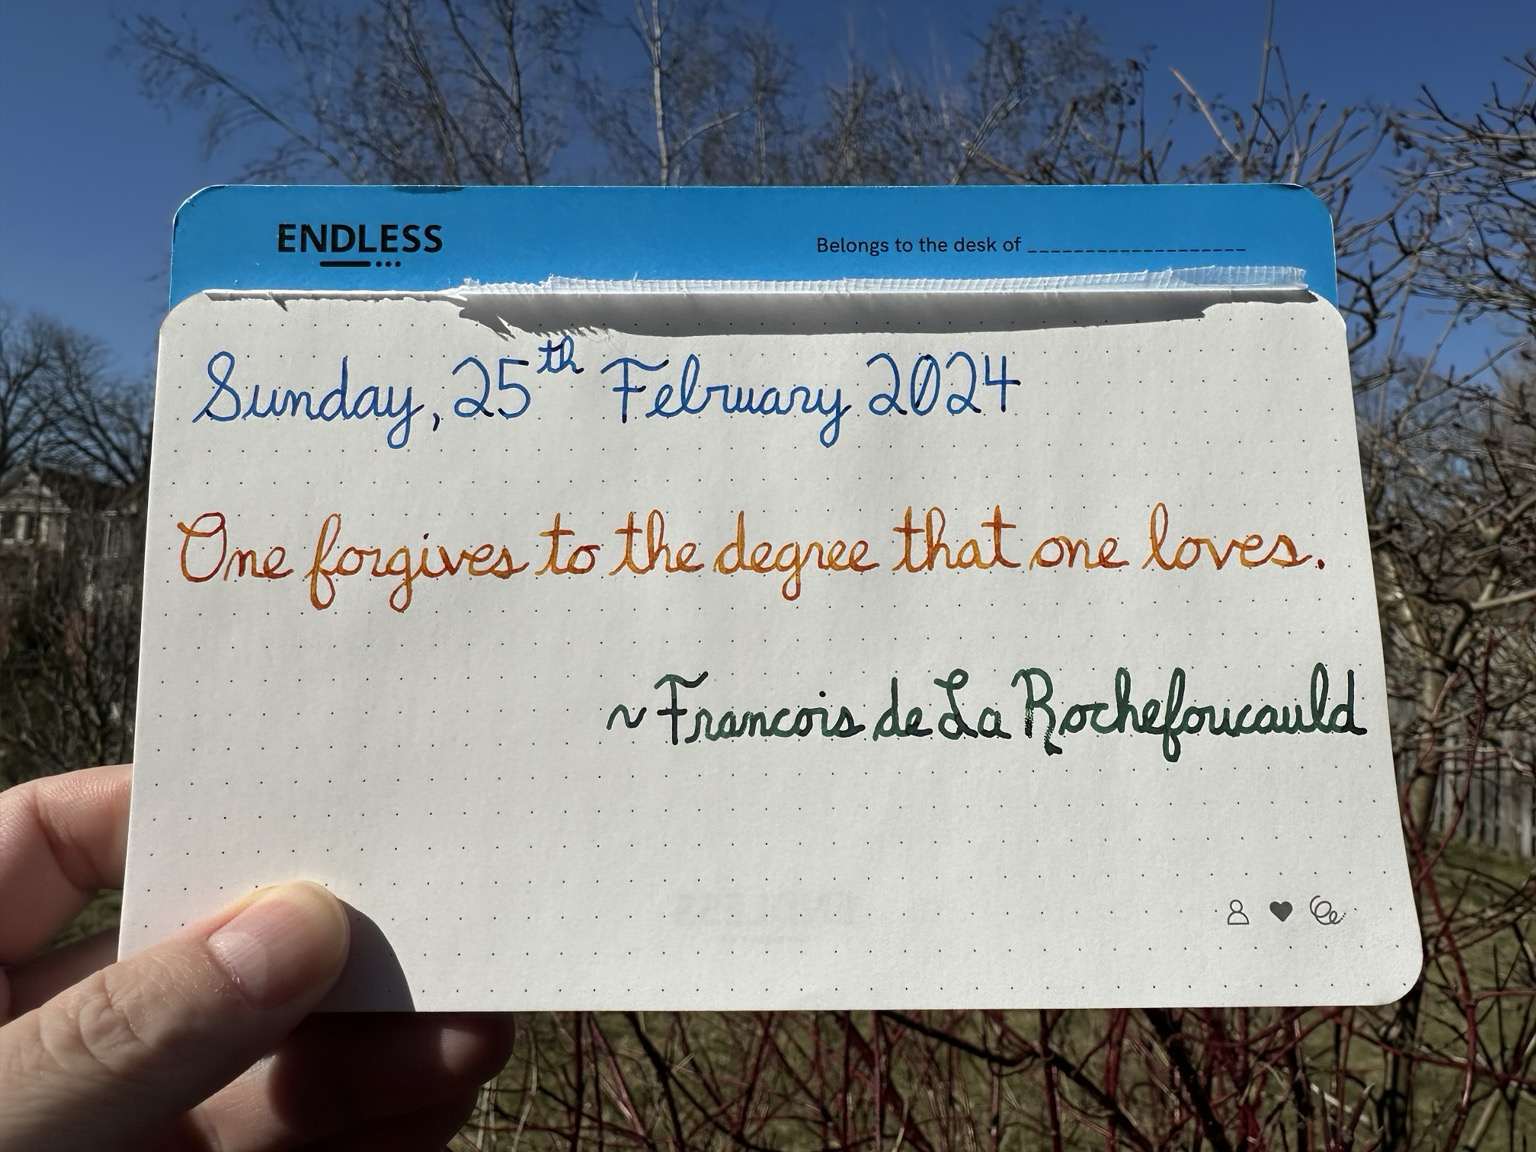 ENDLESS
Belongs to the desk of ____________________
Sunday, 25th February 2024
One forgives to the degree that one loves.
~Francois de La Rochefoucauld